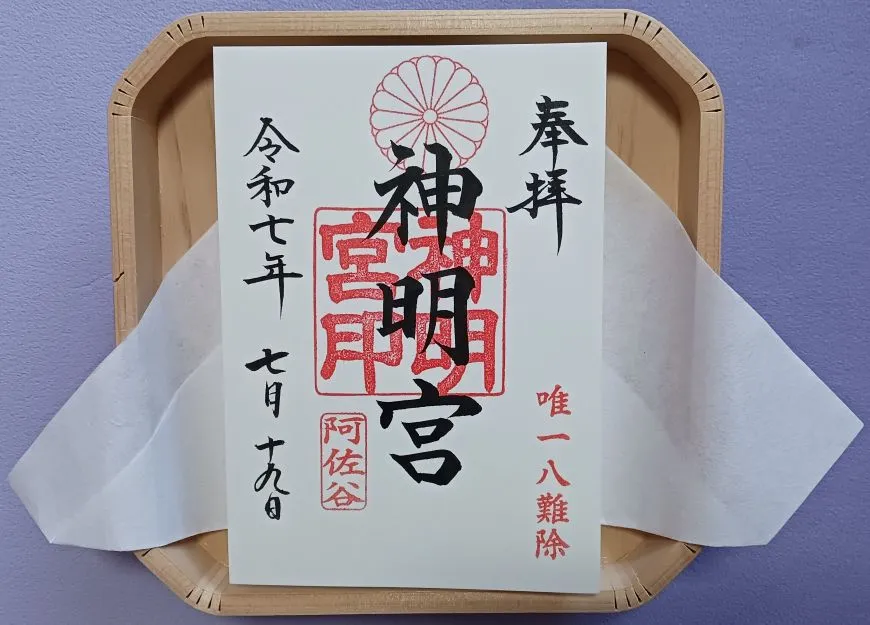 奉拝
唯一八難除
神明宮
神明
宮印
阿佐谷
令和七年 七月 十九日